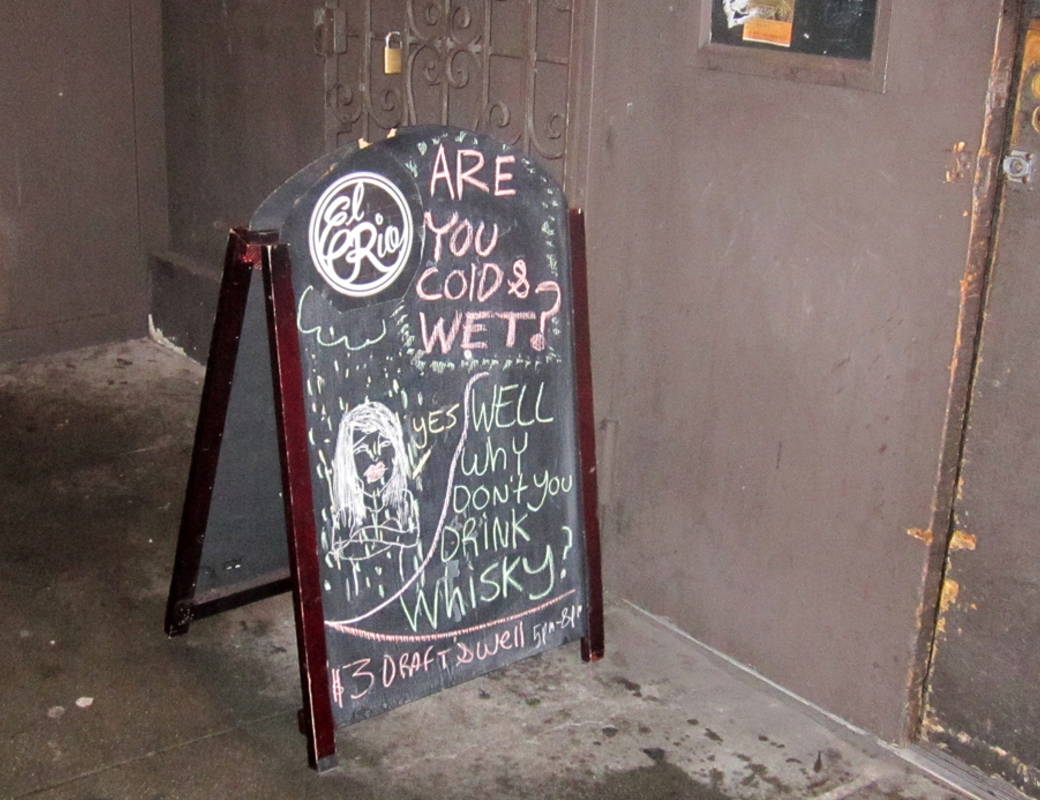 El
Rio
ARE
YOU
COLD &
WET?
YES
WELL
Why
DON't YOU
DRINK
WhISKY?
$3 DRAFT & well 5PM-8PM